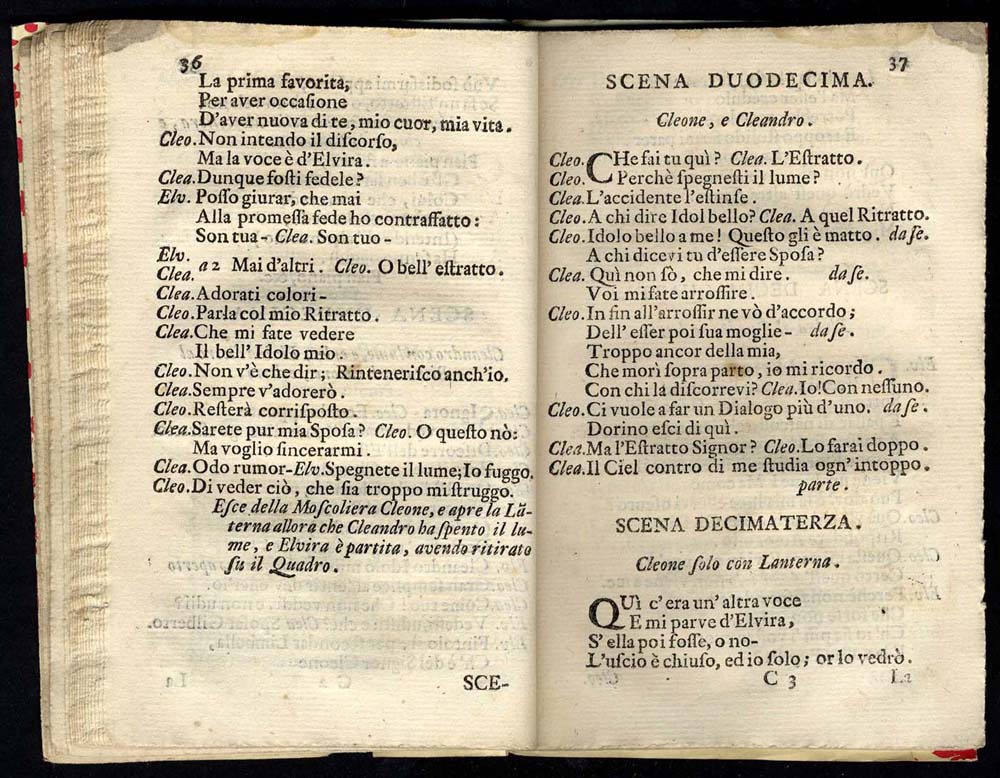 36
La prima favorita,
Per aver occaſione
D'aver nuova di te, mio cuor, mia vita.
Cleo. Non intendo il diſcorſo,
Ma la voce è d'Elvira.
Clea. Dunque foſti fedele?
Elv. Poſſo giurar, che mai
Alla promeſſa fede ho contraffatto:
Son tua- Clea. Son tuo-
Elv.
Clea. a 2 Mai d'altri. Cleo. O bell' eſtratto.
Clea. Adorati colori-
Cleo. Parla col mio Ritratto.
Clea. Che mi fate vedere
Il bell' Idolo mio.
Cleo. Non v'è che dir; Rinteneriſco anch'io.
Clea. Sempre v'adorerò.
Cleo. Reſterà corriſpoſto.
Clea. Sarete pur mia Spoſa? Cleo. O queſto nò:
Ma voglio ſincerarmi.
Clea. Odo rumor- Elv. Spegnete il lume; Io fuggo.
Cleo. Di veder ciò, che ſia troppo mi ſtruggo.
Eſce della Moſcoliera Cleone, e apre la Lã-
terna allora che Cleandro ha ſpento il lu-
me, e Elvira è partita, avendo ritirato
ſu il Quadro.
SCE-
37
SCENA DUODECIMA.
Cleone, e Cleandro.
Cleo. CHe fai tu quì? Clea. L'Eſtratto.
Cleo. Perchè ſpegneſti il lume?
Clea. L'accidente l'eſtinſe.
Cleo. A chi dire Idol bello? Clea. A quel Ritratto.
Cleo. Idolo bello a me! Queſto gli è matto. da ſe.
A chi dicevi tu d'eſſere Spoſa?
Clea. Quì non sò, che mi dire. da ſe.
Voi mi fate arroſſire.
Cleo. In fin all'arroſſir ne vò d'accordo;
Dell' eſſer poi ſua moglie- da ſe.
Troppo ancor della mia,
Che morì ſopra parto, io mi ricordo.
Con chi la diſcorrevi? Clea. Io! Con neſſuno.
Cleo. Ci vuole a far un Dialogo più d'uno. da ſe.
Dorino eſci di quì.
Clea. Ma l'Eſtratto Signor? Cleo. Lo farai doppo.
Clea. Il Ciel contro di me ſtudia ogn' intoppo.
parte.
SCENA DECIMATERZA.
Cleone ſolo con Lanterna.
QUì c' era un' altra voce
E mi parve d'Elvira,
S' ella poi foſſe, o no-
L'uſcio è chiuſo, ed io ſolo; or lo vedrò.
C 3
La